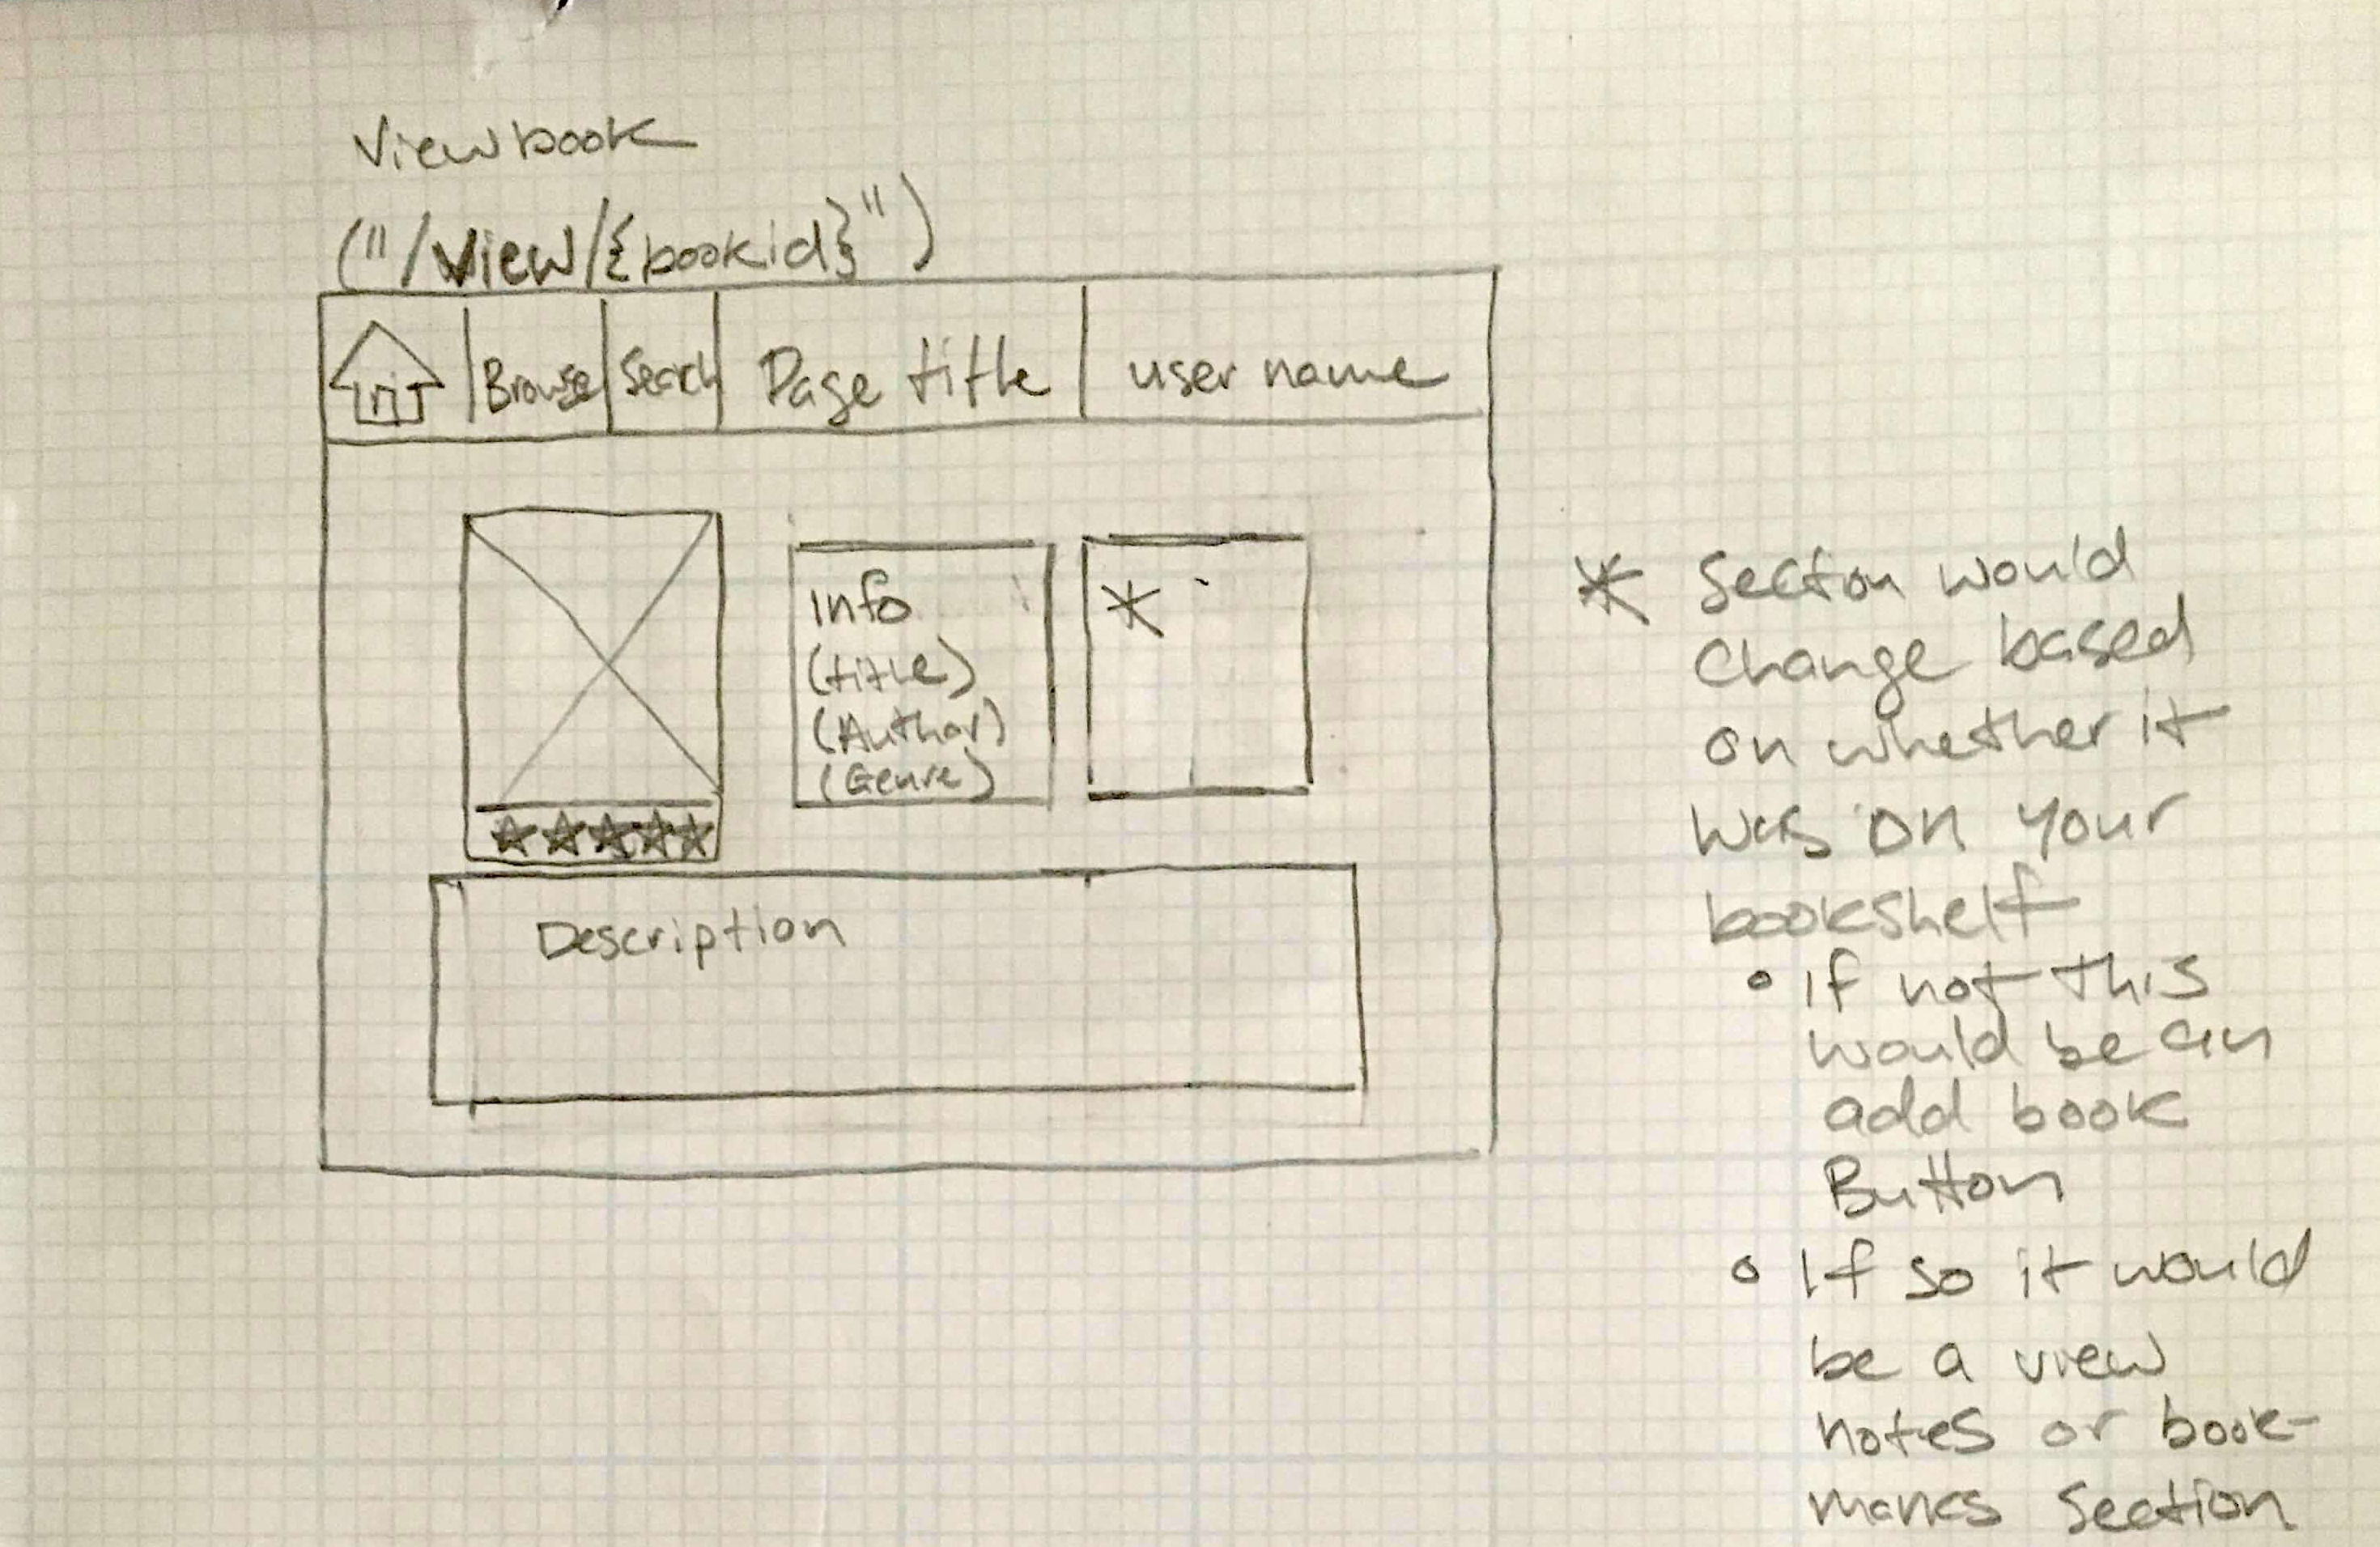 View book
("/view/{bookid}")
Browse Search Page title user name
Info
(title)
(Author)
(Genre)
*
Description
* Section would
change based
on whether it
was on your
bookshelf
• if not this
would be an
add book
Button
• If so it would
be a view
notes or book-
marks section